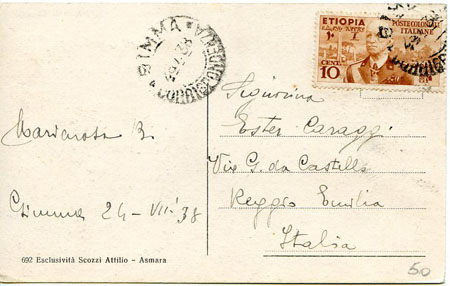 GIMMA
CORRISPONDENZA
ETIOPIA
POSTE COLONIALI
ITALIANE
10
CENT.
Signorina
Ester Caraggi
Via G. da Castello
Reggio Emilia
Italia
Mariarosa B.
Gimma 24-VII-38
692 Esclusività Scozzi Attilio - Asmara
50